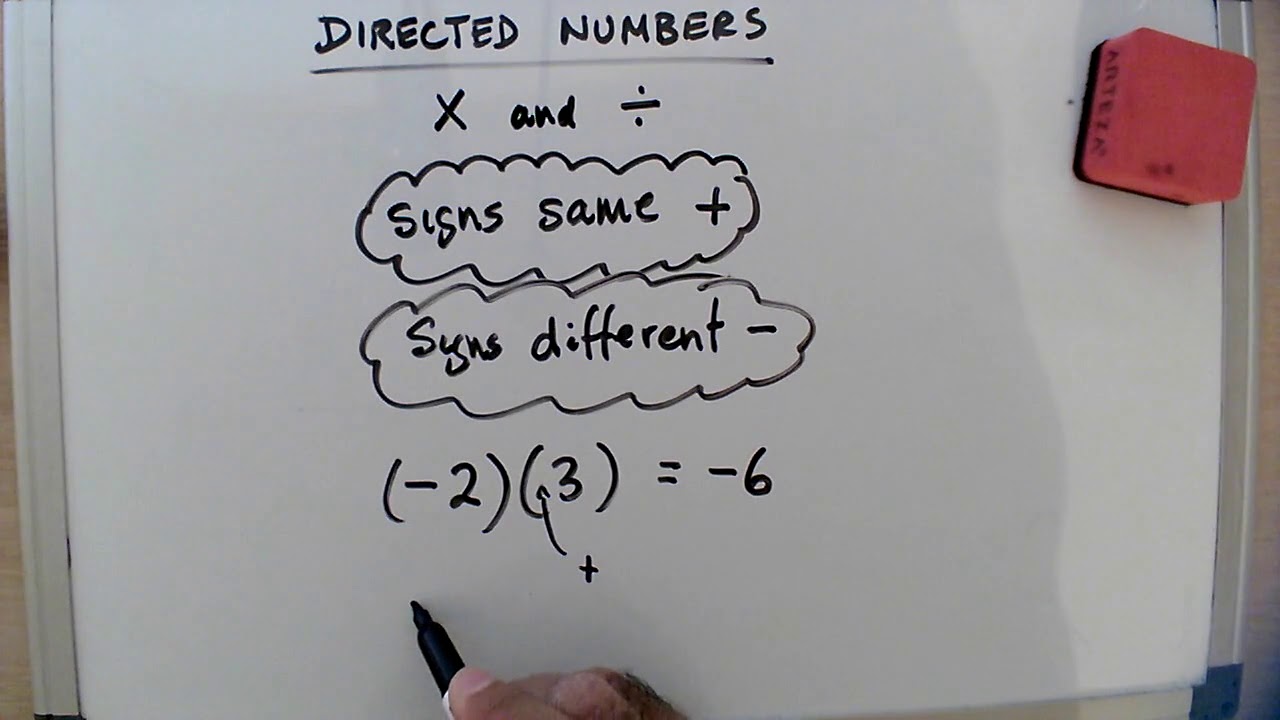 DIRECTED NUMBERS
X and ÷
Signs same +
Signs different -
(-2)(3) = -6
+
ARTEZA